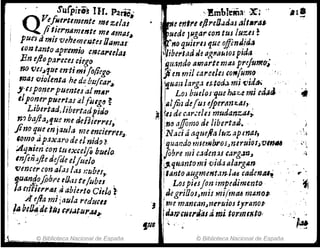 Suspiros III. Parte,
Que fuertemente me zelas
si tiernamente me amas,
pues a mis vehementes llamas
con tanto apremio encarcelas
En esso pareces ciego
no ves, que en ti mi sossiego
mas violenta ha de buscar,
y es poner puentes al mar
el poner puertas al fuego?
Libertad, libertad pido
no basta, que me destierres,
si no que en jaula me encierres,
como a paxaro de el nido?
Aquien con tu excelso buelo
enseñaste desde el suelo
vencer con alas las nubes,
quando sobre ellas te subes
la encierras a abierto Cielo?
A essa mi jaula reduces
la beldad de tus criaturas,
que
Emblema X.
que entre estrelladas alturas
puede jugar con tus luzes?
no quieres que offendida
libertad de agravios pida
quando amarte mas presumo;
si en mil carceles consumo
quan larga es toda mi vida.
Los buelos que haze mi edad
al fin de sus esperanzas,
es de carceles mudanzas,
no assomo de libertad.
Naci à aquesta luz apenas,
quando miembros, neruios, venas
sobre mi cadenas cargan,
quanto mi vida alargan
tanto augmentan las cadenas;
Los pies son impedimento
de grillos, mis mismas manos
me mancan, neruios tyranos
dan cuerdas à mi tormento.
© Biblioteca Nacional de España
© Biblioteca Nacional de España